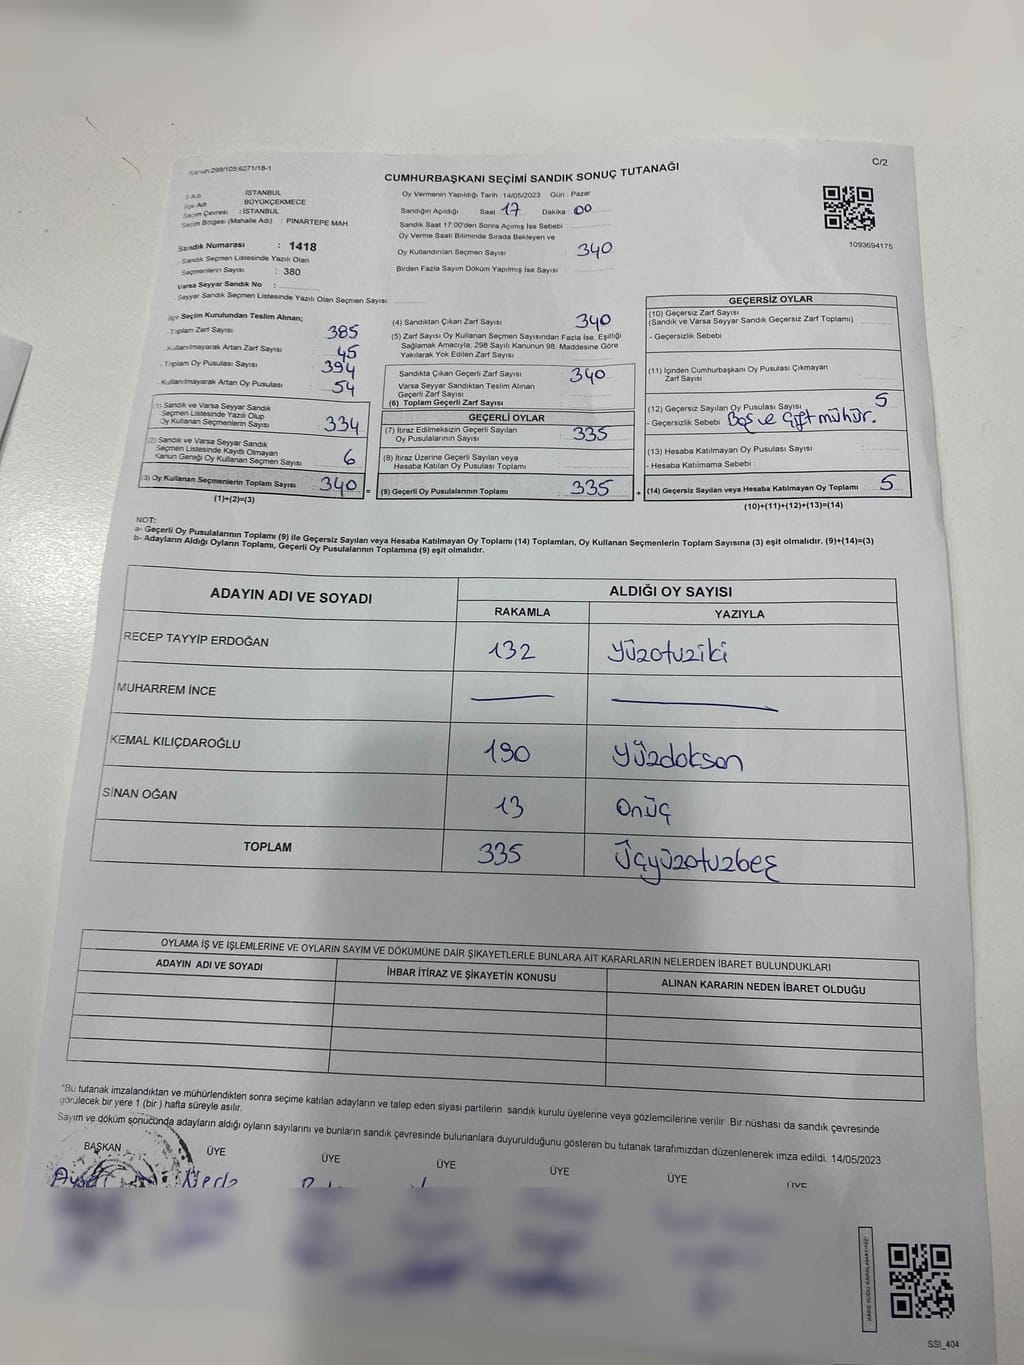 Kanun:298/105;6271/18-1
C/2
CUMHURBAŞKANI SEÇİMİ SANDIK SONUÇ TUTANAĞI
İl Adı : İSTANBUL
İlçe Adı : BÜYÜKÇEKMECE
Seçim Çevresi : İSTANBUL
Seçim Bölgesi (Mahalle Adı) : PINARTEPE MAH.
Sandık Numarası : 1418
Sandık Seçmen Listesinde Yazılı Olan
Seçmenlerin Sayısı : 380
Varsa Seyyar Sandık No :
Seyyar Sandık Seçmen Listesinde Yazılı Olan Seçmen Sayısı:
Oy Vermenin Yapıldığı Tarih : 14/05/2023 Gün : Pazar
Sandığın Açıldığı Saat 17 Dakika : 00
Sandık Saat 17:00'den Sonra Açımış İse Sebebi :
Oy Verme Saati Bitiminde Sırada Bekleyen ve
Oy Kullandırılan Seçmen Sayısı : 340
Birden Fazla Sayım Döküm Yapılmış İse Sayısı
1093694175
İlçe Seçim Kurulundan Teslim Alınan;
Toplam Zarf Sayısı : 385
Kullanılmayarak Artan Zarf Sayısı : 45
Toplam Oy Pusulası Sayısı : 394
Kullanılmayarak Artan Oy Pusulası : 54
(1) Sandık ve Varsa Seyyar Sandık
Seçmen Listesinde Yazılı Olup
Oy Kullanan Seçmenlerin Sayısı : 334
(2) Sandık ve Varsa Seyyar Sandık
Seçmen Listesinde Kayıtlı Olmayan
Kanun Gereği Oy Kullanan Seçmen Sayısı : 6
(3) Oy Kullanan Seçmenlerin Toplam Sayısı : 340
(1)+(2)=(3)
(4) Sandıktan Çıkan Zarf Sayısı : 340
(5) Zarf Sayısı Oy Kullanan Seçmen Sayısından Fazla İse, Eşitliği
Sağlamak Amacıyla, 298 Sayılı Kanunun 98. Maddesine Göre
Yakılarak Yok Edilen Zarf Sayısı
Sandıkta Çıkan Geçerli Zarf Sayısı : 340
Varsa Seyyar Sandıktan Teslim Alınan
Geçerli Zarf Sayısı
(6) Toplam Geçerli Zarf Sayısı
GEÇERLİ OYLAR
(7) İtiraz Edilmeksizin Geçerli Sayılan
Oy Pusulalarının Sayısı : 335
(8) İtiraz Üzerine Geçerli Sayılan veya
Hesaba Katılan Oy Pusulası Toplamı
= (9) Geçerli Oy Pusulalarının Toplamı : 335
GEÇERSİZ OYLAR
(10) Geçersiz Zarf Sayısı
(Sandık ve Varsa Seyyar Sandık Geçersiz Zarf Toplamı)
- Geçersizlik Sebebi
(11) İçinden Cumhurbaşkanı Oy Pusulası Çıkmayan
Zarf Sayısı
(12) Geçersiz Sayılan Oy Pusulası Sayısı : 5
- Geçersizlik Sebebi Boş ve Çift mühür.
(13) Hesaba Katılmayan Oy Pusulası Sayısı
- Hesaba Katılmama Sebebi
+ (14) Geçersiz Sayılan veya Hesaba Katılmayan Oy Toplamı : 5
(10)+(11)+(12)+(13)=(14)
NOT:
a- Geçerli Oy Pusulalarının Toplamı (9) ile Geçersiz Sayılan veya Hesaba Katılmayan Oy Toplamı (14) Toplamları, Oy Kullanan Seçmenlerin Toplam Sayısına (3) eşit olmalıdır. (9)+(14)=(3)
b- Adayların Aldığı Oyların Toplamı, Geçerli Oy Pusulalarının Toplamına (9) eşit olmalıdır.
ADAYIN ADI VE SOYADI
ALDIĞI OY SAYISI
RAKAMLA YAZIYLA
RECEP TAYYİP ERDOĞAN 132 Yüzotuziki
MUHARREM İNCE
KEMAL KILIÇDAROĞLU 190 Yüzdoksan
SİNAN OĞAN 13 Onüç
TOPLAM 335 Üçyüzotuzbeş
OYLAMA İŞ VE İŞLEMLERİNE VE OYLARIN SAYIM VE DÖKÜMÜNE DAİR ŞİKAYETLERLE BUNLARA AİT KARARLARIN NELERDEN İBARET BULUNDUKLARI
ADAYIN ADI VE SOYADI İHBAR İTİRAZ VE ŞİKAYETİN KONUSU ALINAN KARARIN NEDEN İBARET OLDUĞU
*Bu tutanak imzalandıktan ve mühürlendikten sonra seçime katılan adayların ve talep eden siyasi partilerin sandık kurulu üyelerine veya gözlemcilerine verilir. Bir nüshası da sandık çevresinde
görülecek bir yere 1 (bir) hafta süreyle asılır.
Sayım ve döküm sonucunda adayların aldığı oyların sayılarını ve bunların sandık çevresinde bulunanlara duyurulduğunu gösteren bu tutanak tarafımızdan düzenlenerek imza edildi. 14/05/2023
BAŞKAN ÜYE ÜYE ÜYE ÜYE ÜYE ÜYE
SSI_404